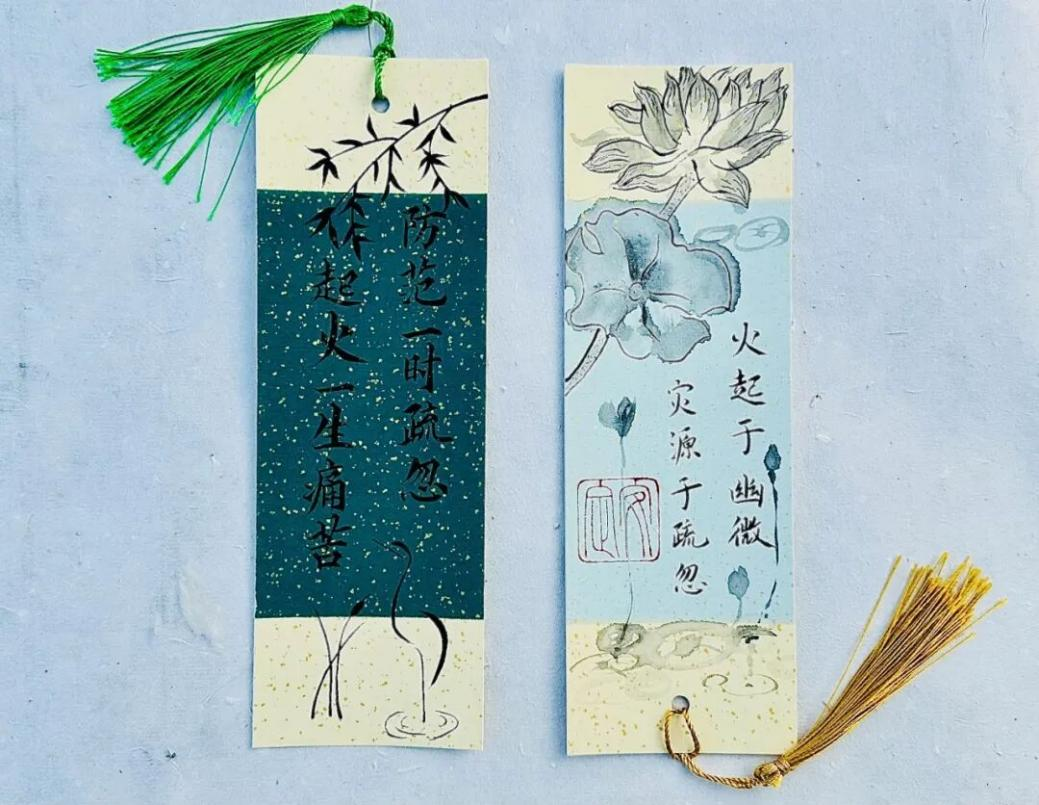 防范一时疏忽
起火一生痛苦
火起于幽微
灾源于疏忽